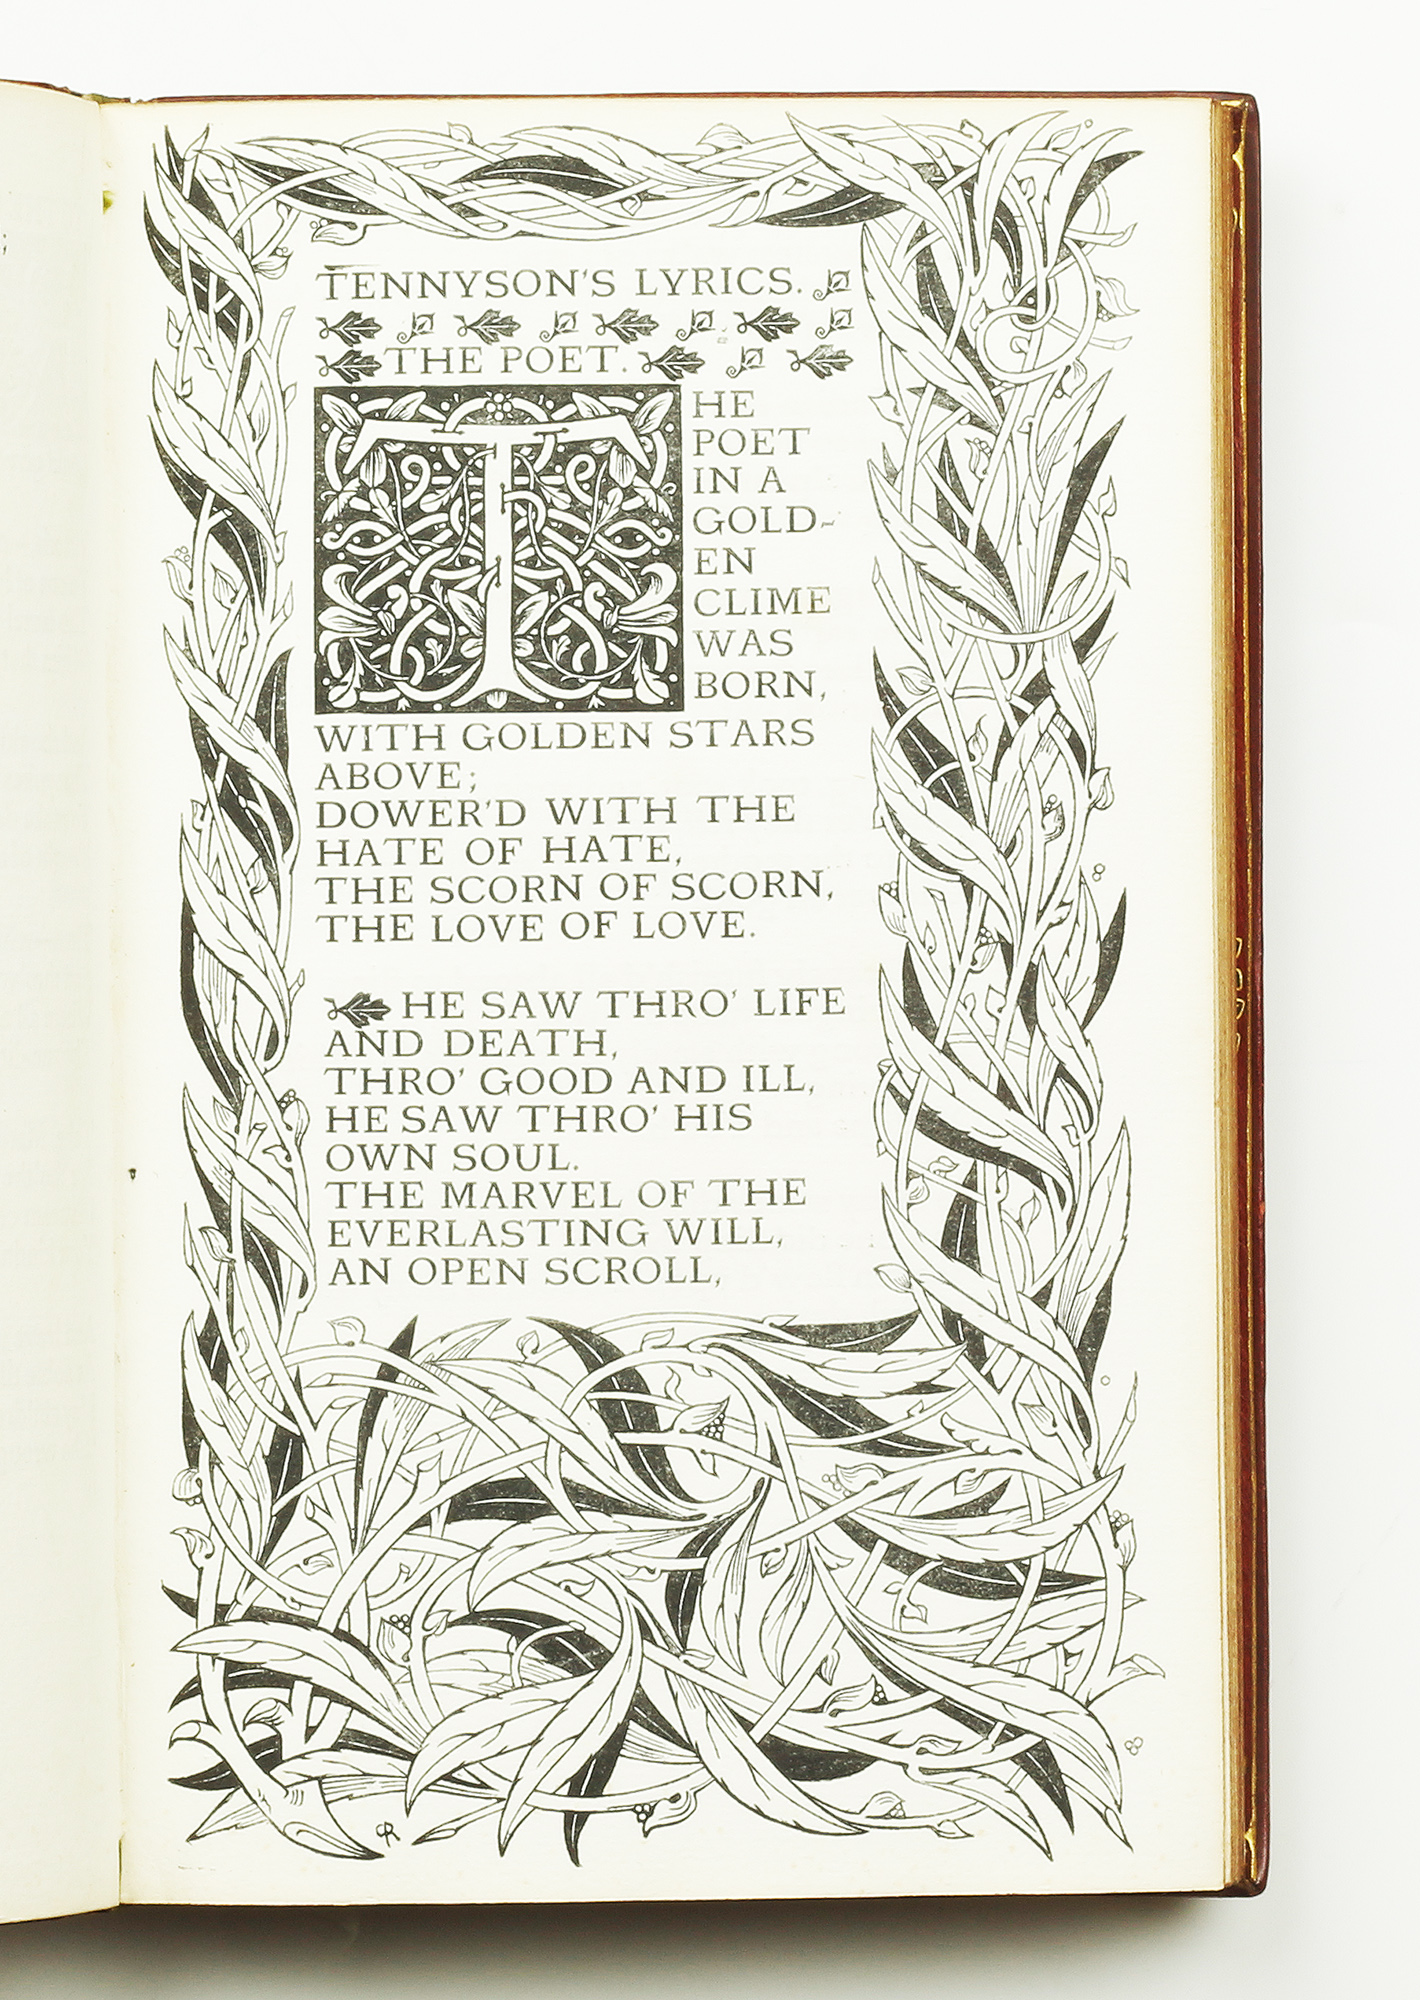 TENNYSON'S LYRICS.
THE POET.
THE
POET
IN A
GOLD-
EN
CLIME
WAS
BORN,
WITH GOLDEN STARS
ABOVE;
DOWER'D WITH THE
HATE OF HATE,
THE SCORN OF SCORN,
THE LOVE OF LOVE.
HE SAW THRO' LIFE
AND DEATH,
THRO' GOOD AND ILL,
HE SAW THRO' HIS
OWN SOUL.
THE MARVEL OF THE
EVERLASTING WILL,
AN OPEN SCROLL,
CR